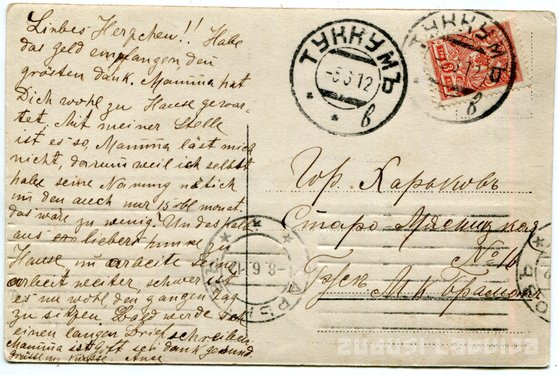 Liebes Herzchen!! Habe
das geld empfangen den
grösten dank. Mamma hat
Dich wohl zu Hause gewar-
tet. Mit meiner Stelle
ist es so, Mamma läst mich
nicht, darrum weil ich selbst
habe seine
in den auch nur 15 rbl monat
das wäre zu wenig! Und deshalb
aus lieber
Hause im arbeite
arbeit weiter, schwer
es mir wohl den ganzen Tag
zu sitzen. Bald werde ich
einen langen Brief schreiben.
Mamma ist Gott sei dank gesund
Grüsse u. Küsse
ТУККУМЪ
-8.6.12
в
ТУККУМЪ
6.12
в
Гор. Харьковъ
Старо Мясницкая
№ 16
М. К.
-8.6.12